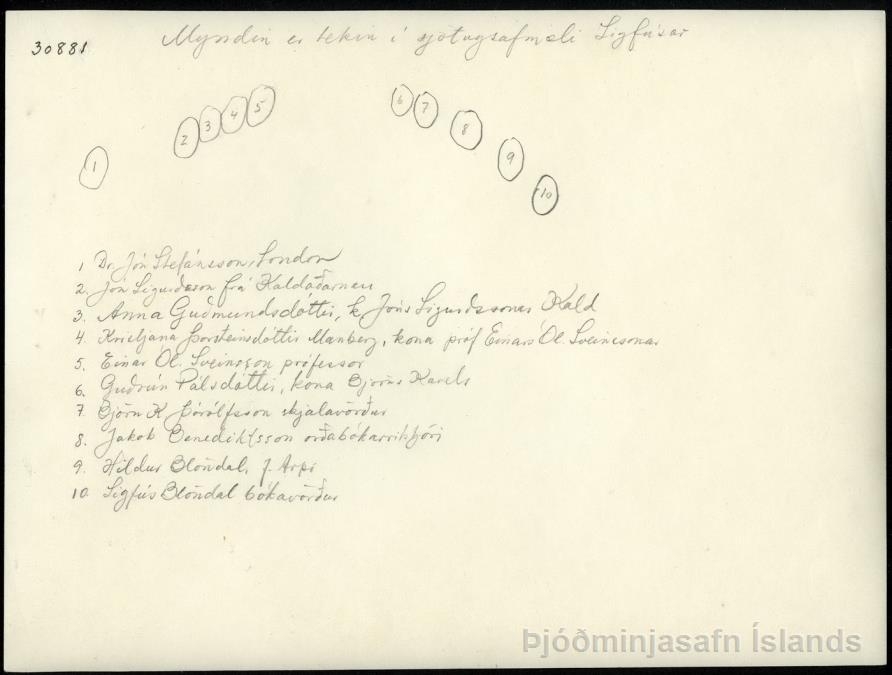 30881
Myndin er tekin í sjötugsafmæli Sigfúsar
2 3 4 5 6 7 8
1 9
10
1 Dr. Jón Stefánsson, London
2. Jón Sigurðsson frá Kaldaðarnesi
3. Anna Guðmundsdóttir, k. Jóns Sigurðssonar Kald
4. Kristjana Þorsteinsdóttir Manberg, kona próf Einars Ól. Sveinssonar
5. Einar Ól. Sveinsson prófessor
6. Guðrún Pálsdóttir, kona Björns Karels
7. Björn K. Þórólfsson skjalavörður
8. Jakob Benediktsson orðabókarritstjóri
9. Hildur Blöndal, f. Arpi
10. Sigfús Blöndal bókavörður
Þjóðminjasafn Íslands